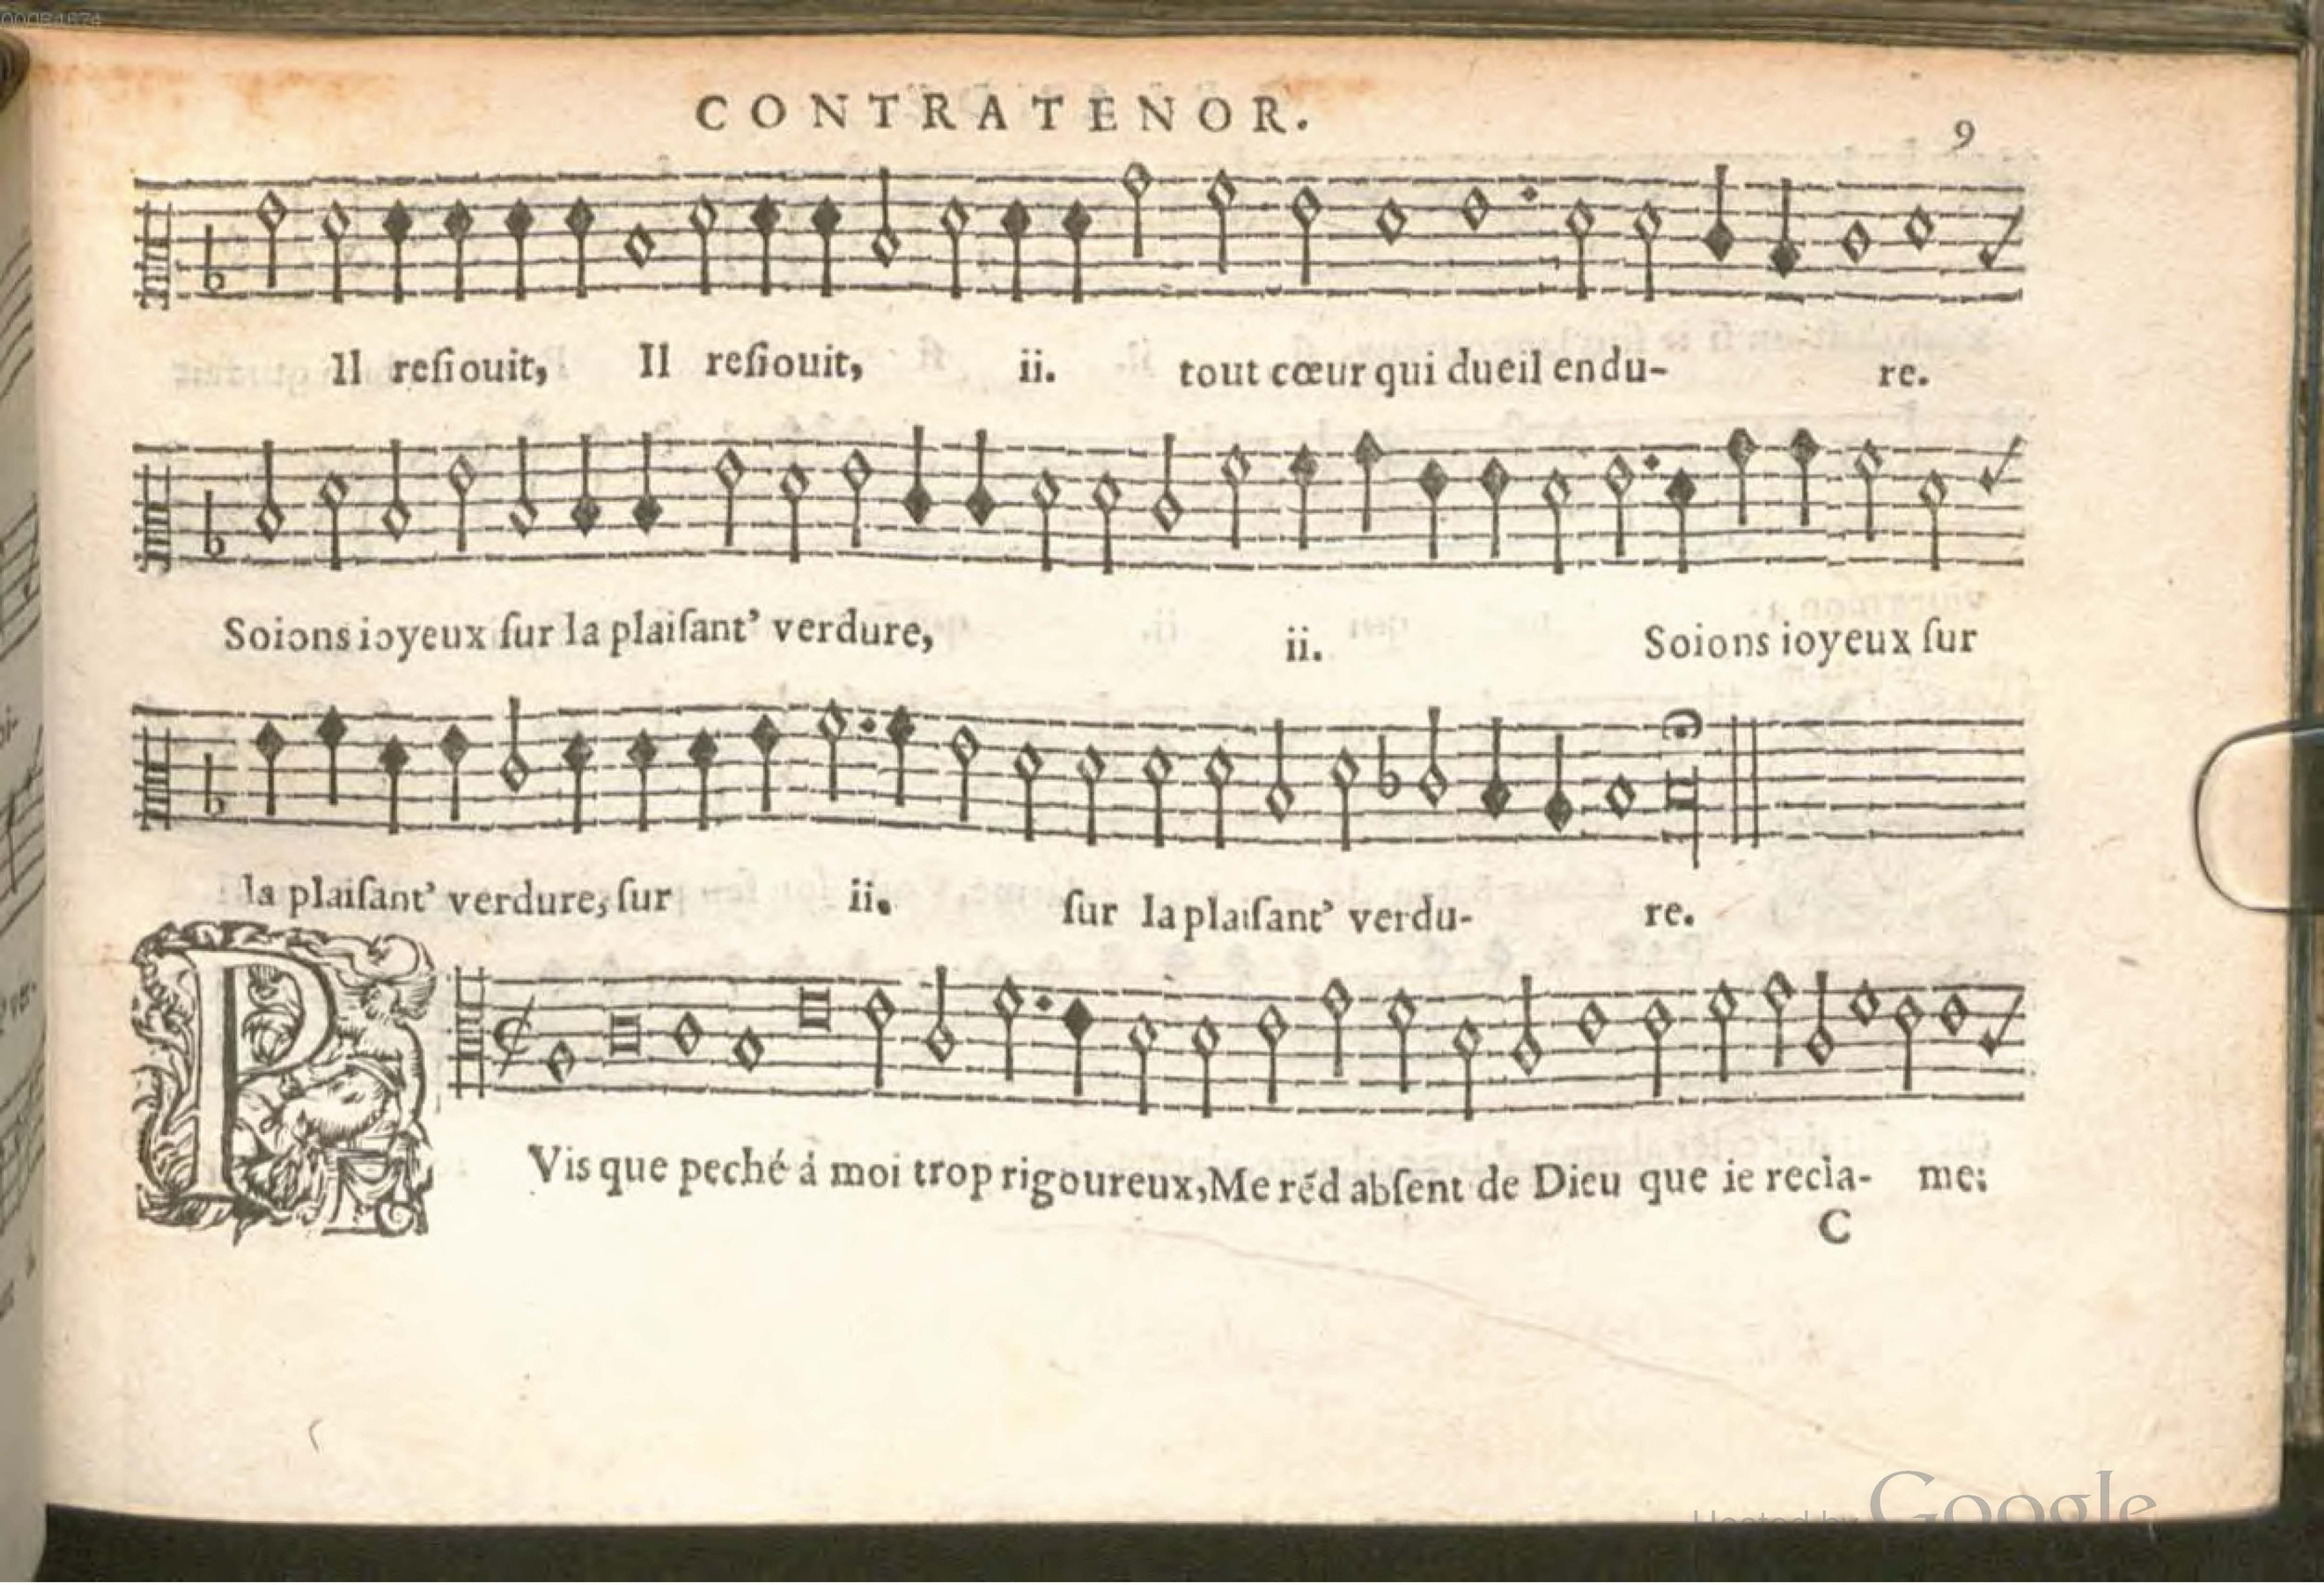 CONTRATENOR.
9
Il reſiouit, Il reſiouit, ii. tout cœur qui dueil endu- re.
Soions ioyeux ſur la plaiſant’ verdure, ii. Soions ioyeux ſur
la plaiſant’ verdure, ſur ii. ſur la plaiſant’ verdu- re.
PVis que peché á moi trop rigoureux, Me réd abſent de Dieu que ie recla- me:
C
Hosted by Google